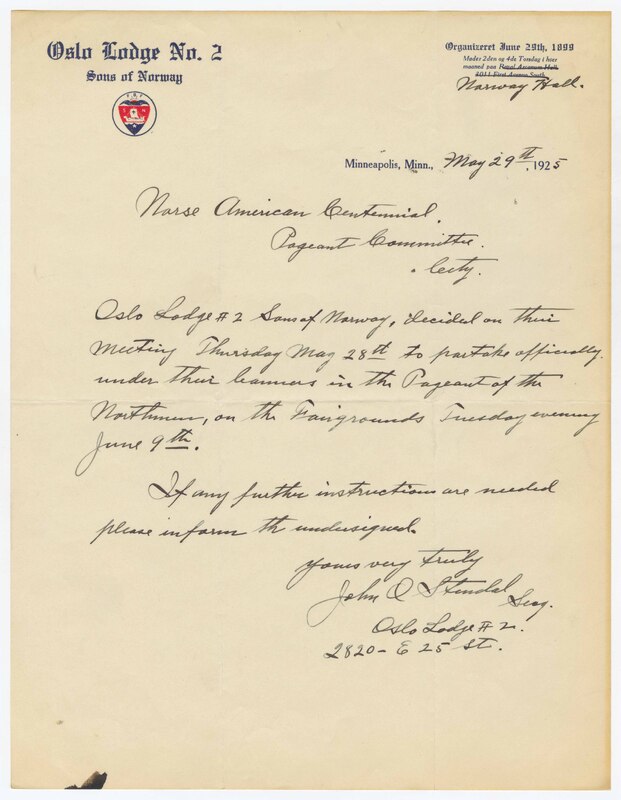 Oslo Lodge No. 2
Sons of Norway
Organizeret June 29th, 1899
Møder 2den og 4de Torsdag i hver
maaned paa Royal Arcanum Hall,
1011 First Avenue South
Norway Hall.
Minneapolis, Minn., May 29th, 1925
Norse American Centennial.
Pageant Committee.
City.
Oslo Lodge # 2 Sons of Norway, decided on their
meeting Thursday May 28th to partake officially
under their banners in the Pageant of the
Northmen, on the Fairgrounds Tuesday evening
June 9th.
If any further instructions are needed
please inform th undersigned.
yours very truly
John O Stendal Secy.
Oslo Lodge # 2.
2820 - E 25 St.